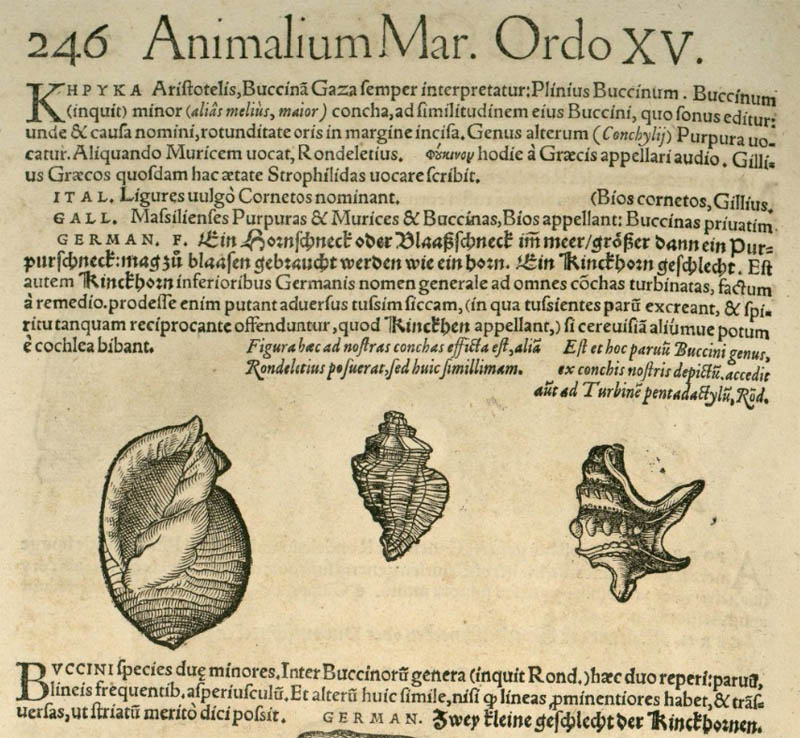 246 Animalium Mar. Ordo XV.
KHPYKA Aristotelis, Buccinā Gaza semper interpretatur: Plinius Buccinum. Buccinum
(inquit) minor (aliâs meliùs, maior) concha, ad similitudinem eius Buccini, quo sonus editur:
unde & causa nomini, rotunditate oris in margine incisa. Genus alterum (Conchylij) Purpura uo-
catur. Aliquando Muricem uocat, Rondeletius. hodie à Græcis appellari audio. Gilli-
us Græcos quosdam hac ætate Strophilidas uocare scribit.
ITAL. Ligures uulgò Cornetos nominant. (Bios cornetos, Gillius.
GALL. Massilienses Purpuras & Murices & Buccinas, Bios appellant: Buccinas priuatim
GERMAN. F. Ein Hornschneck oder Blaaßschneck im̃ meer/ größer dann ein Pur-
purschneck: mag zů blaasen gebraucht werden wie ein horn. Ein Kinckhorn geschlecht. Est
autem Kinckhorn inferioribus Germanis nomen generale ad omnes cōchas turbinatas, factum
à remedio. prodesse enim putant aduersus tussim siccam, (in qua tussientes parū excreant, & spi-
ritu tanquam reciprocante offenduntur, quod Kinckhen appellant,) si cereuisiā aliūmue potum
è cochlea bibant.
Figura hæc ad nostras conchas efficta est, aliā
Rondeletius posuerat, sed huic simillimam.
Est et hoc paruū Buccini genus,
ex conchis nostris depictū. accedit
aūt ad Turbinē pentadactylū, Rōd.
BVCCINI species duę minores. Inter Buccinorū genera (inquit Rond.) hæc duo reperi: paruā,
lineis frequentib. asperiusculū. Et alterū huic simile, nisi ꝙ lineas ꝓminentiores habet, & trās-
uersas, ut striatū meritò dici possit. GERMAN. Zwey kleine geschlecht der Kinckhornen.